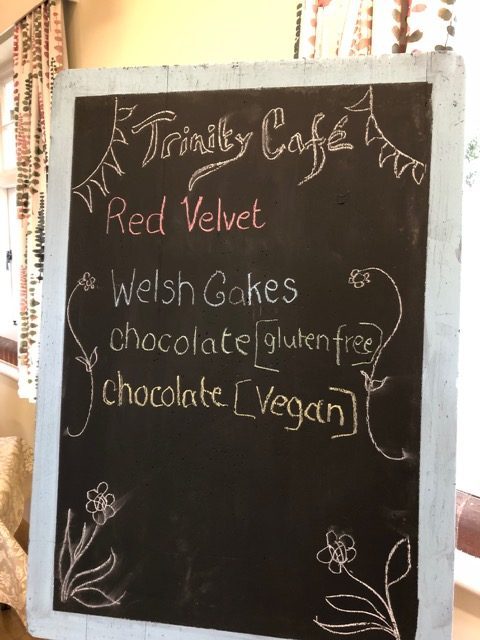 Trinity Café
Red Velvet
Welsh Cakes
chocolate [gluten free]
chocolate [vegan]